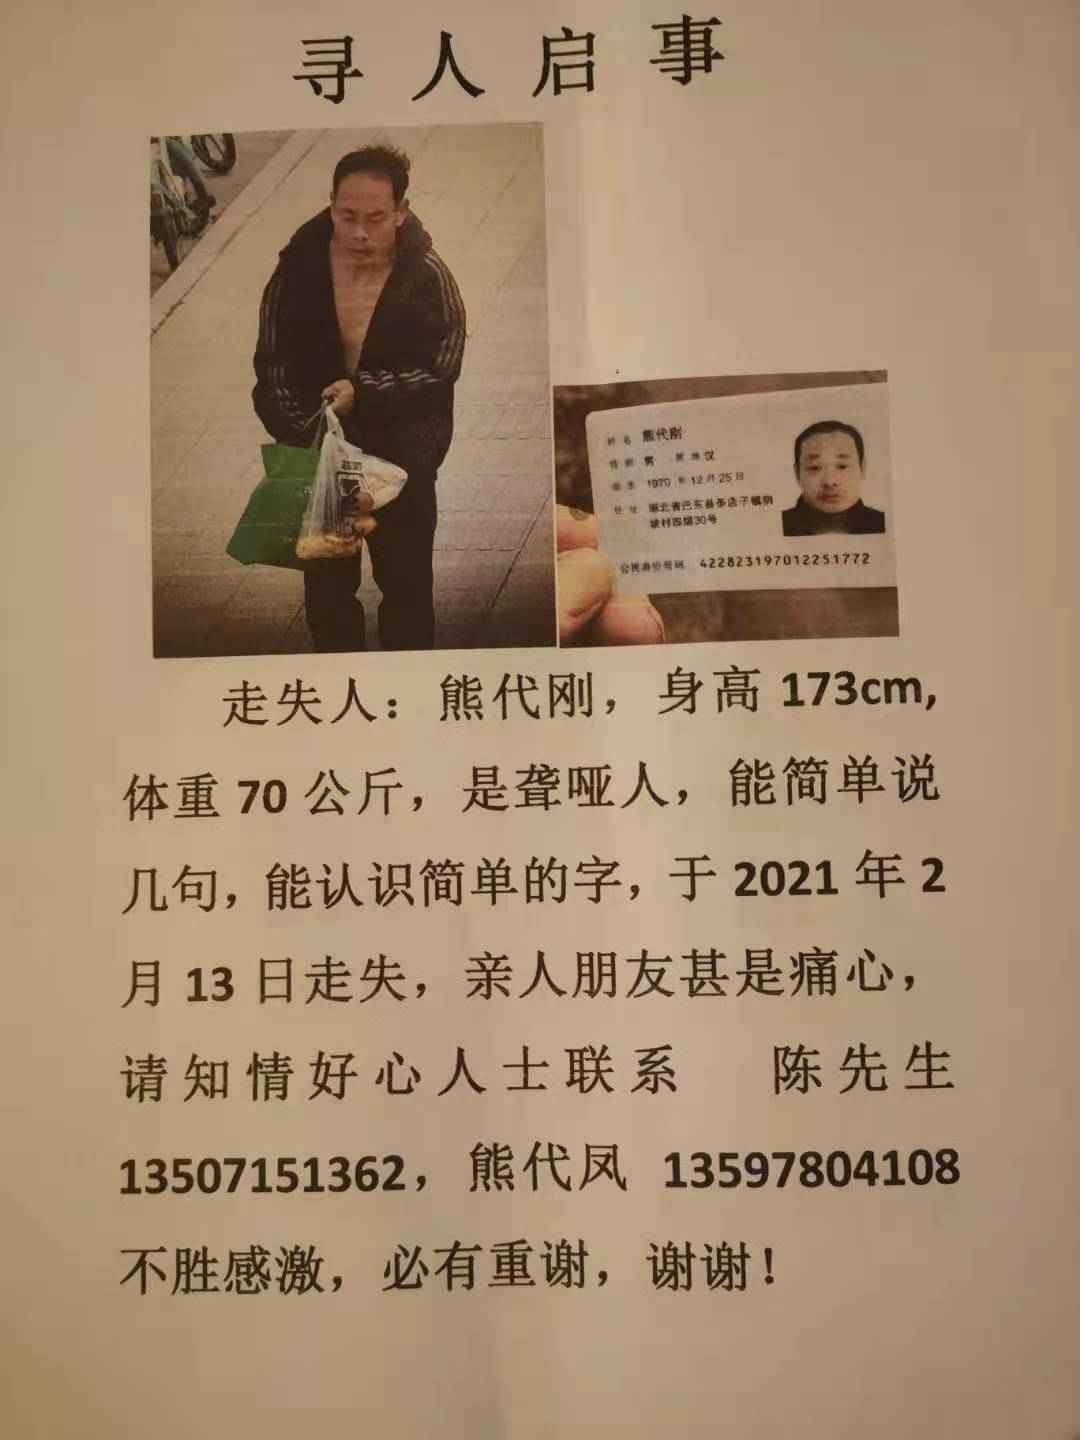 寻人启事
姓名 熊代刚
性别 男 民族 汉
出生 1970 年 12 月 25 日
住址 湖北省巴东县茶店子镇
坡村四组30号
公民身份号码 422823197012251772
走失人：熊代刚，身高 173cm,
体重 70 公斤，是聋哑人，能简单说
几句，能认识简单的字，于 2021 年 2
月 13 日走失，亲人朋友甚是痛心，
请知情好心人士联系 陈先生
13507151362，熊代凤 13597804108
不胜感激，必有重谢，谢谢！